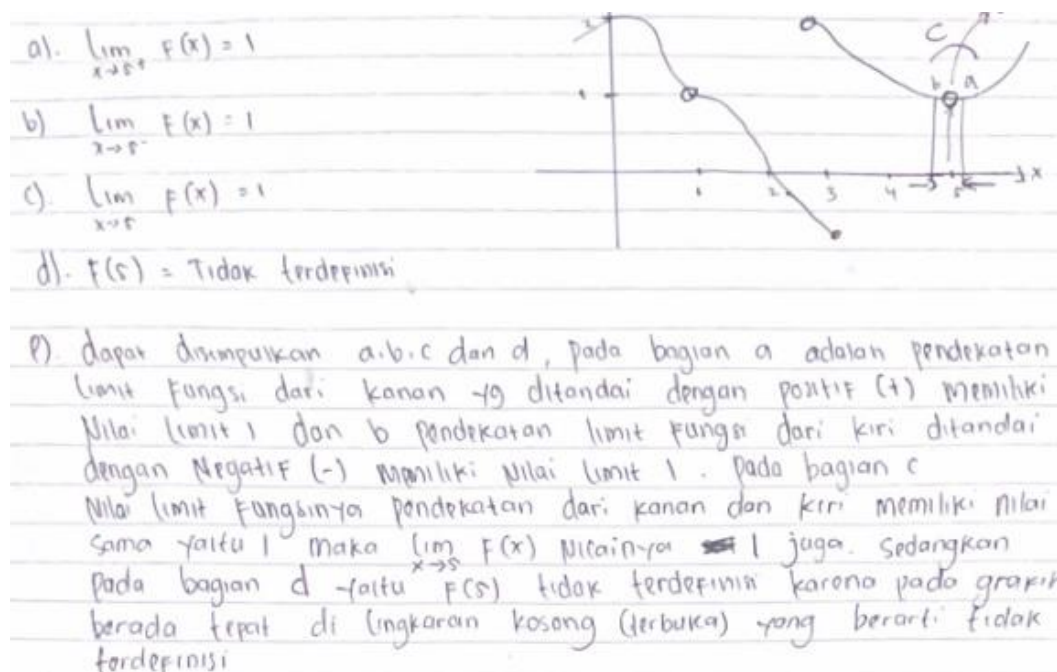 a). lim x→5⁺ F(x) = 1
b) lim x→5⁻ F(x) = 1
c). lim x→5 F(x) = 1
d). F(5) = Tidak terdefinisi
2
1
1 2 3 4 5 x
C
b a
e). dapat disimpulkan a.b.c dan d, pada bagian a adalah pendekatan
limit Fungsi dari kanan yg ditandai dengan positif (+) memiliki
Nilai limit 1 dan b pendekatan limit Fungsi dari kiri ditandai
dengan Negatif (-) memiliki Nilai limit 1. Pada bagian c
Nilai limit Fungsinya pendekatan dari kanan dan kiri memiliki nilai
sama yaitu 1 maka lim x→5 F(x) Nilainya 1 juga. Sedangkan
pada bagian d yaitu F(5) tidak terdefinisi karena pada grafik
berada tepat di lingkaran kosong (terbuka) yang berarti tidak
terdefinisi